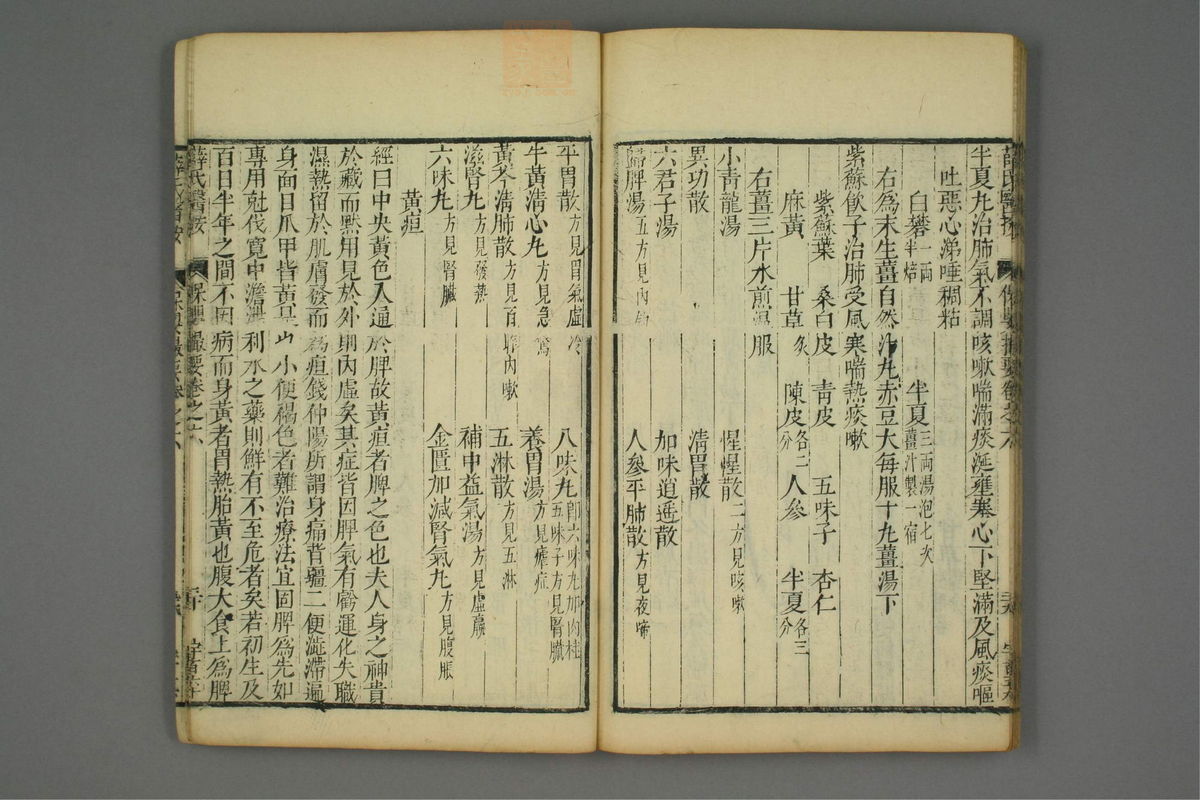 半夏丸治肺氣不調咳嗽喘滿痰涎壅塞心下堅滿及風痰嘔
吐惡心涕唾稠粘
白礬一兩半焙 半夏三兩湯泡七次薑汁製一宿
右爲末生薑自然汁丸赤豆大每服十丸薑湯下
紫蘇飮子治肺受風寒喘熱痰嗽
紫蘇葉 桑白皮 靑皮 五味子 杏仁
麻黃 甘草炙 陳皮各二分 人參 半夏各三分
右薑三片水煎溫服
小靑龍湯 惺惺散二方見咳嗽
異功散 淸胃散
六君子湯 加味逍遙散
歸脾湯五方見內釣 人參平肺散方見夜啼
平胃散方見胃氣虛冷 八味丸卽六味丸加肉桂五味子方見腎臟
牛黃淸心丸方見急驚 養胃湯方見瘧症
黃芩淸肺散方見百晬內嗽 五淋散方見五淋
滋腎丸方見發熱 補中益氣湯方見虛羸
六味丸方見腎臟 金匱加減腎氣丸方見腹脹
黃疸
經曰中央黃色入通於脾故黃疸者脾之色也夫人身之神貴
於藏而黙用見於外則內虛矣其症皆因脾氣有虧運化失職
濕熱留於肌膚發而爲疸錢仲陽所謂身痛背疆二便澁滯遍
身面目爪甲皆黃是也小便褐色者難治療法宜固脾爲先如
專用尅伐寬中澹滲利水之藥則鮮有不至危者矣若初生及
百日半年之間不因病而身黃者胃熱胎黃也腹大食土爲脾
薛氏醫按 保嬰撮要卷之六